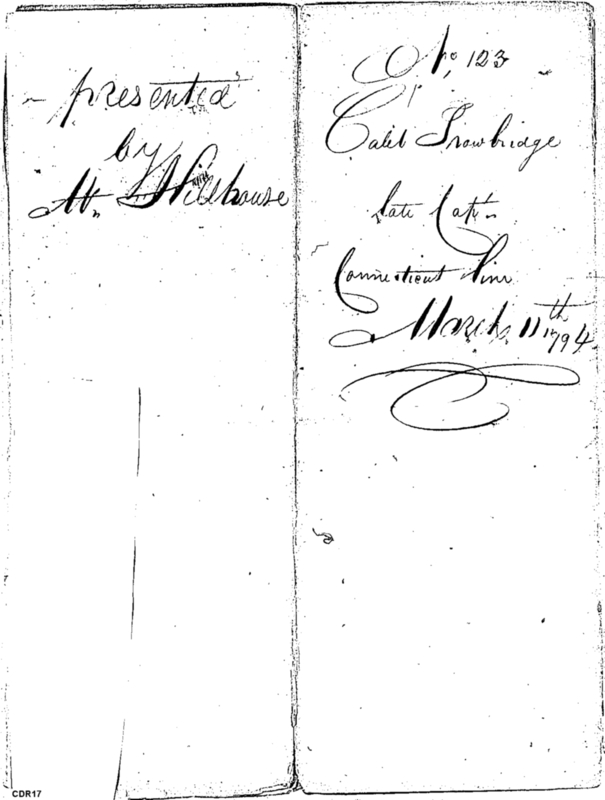 presented
by
Mr. Hillhouse
No. 123
Caleb Trowbridge
late Capt.
Connecticut Line
March 11th 1794.
CDR17